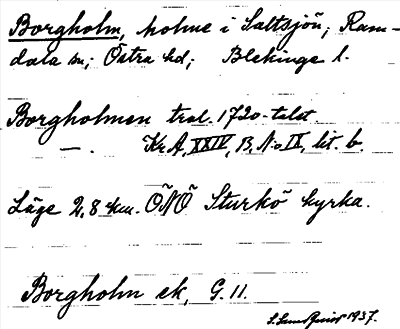 Borgholm, holme i Saltsjön; Ram-
dala sn; Östra hd; Blekinge l.
Borgholmen trol. 1720-talet.
—. Kr.A, XXIV, B, No IX, lit. b.
Läge 2,8 km. ÖNÖ Sturkö kyrka.
Borgholm ek, G. 11.
1937.